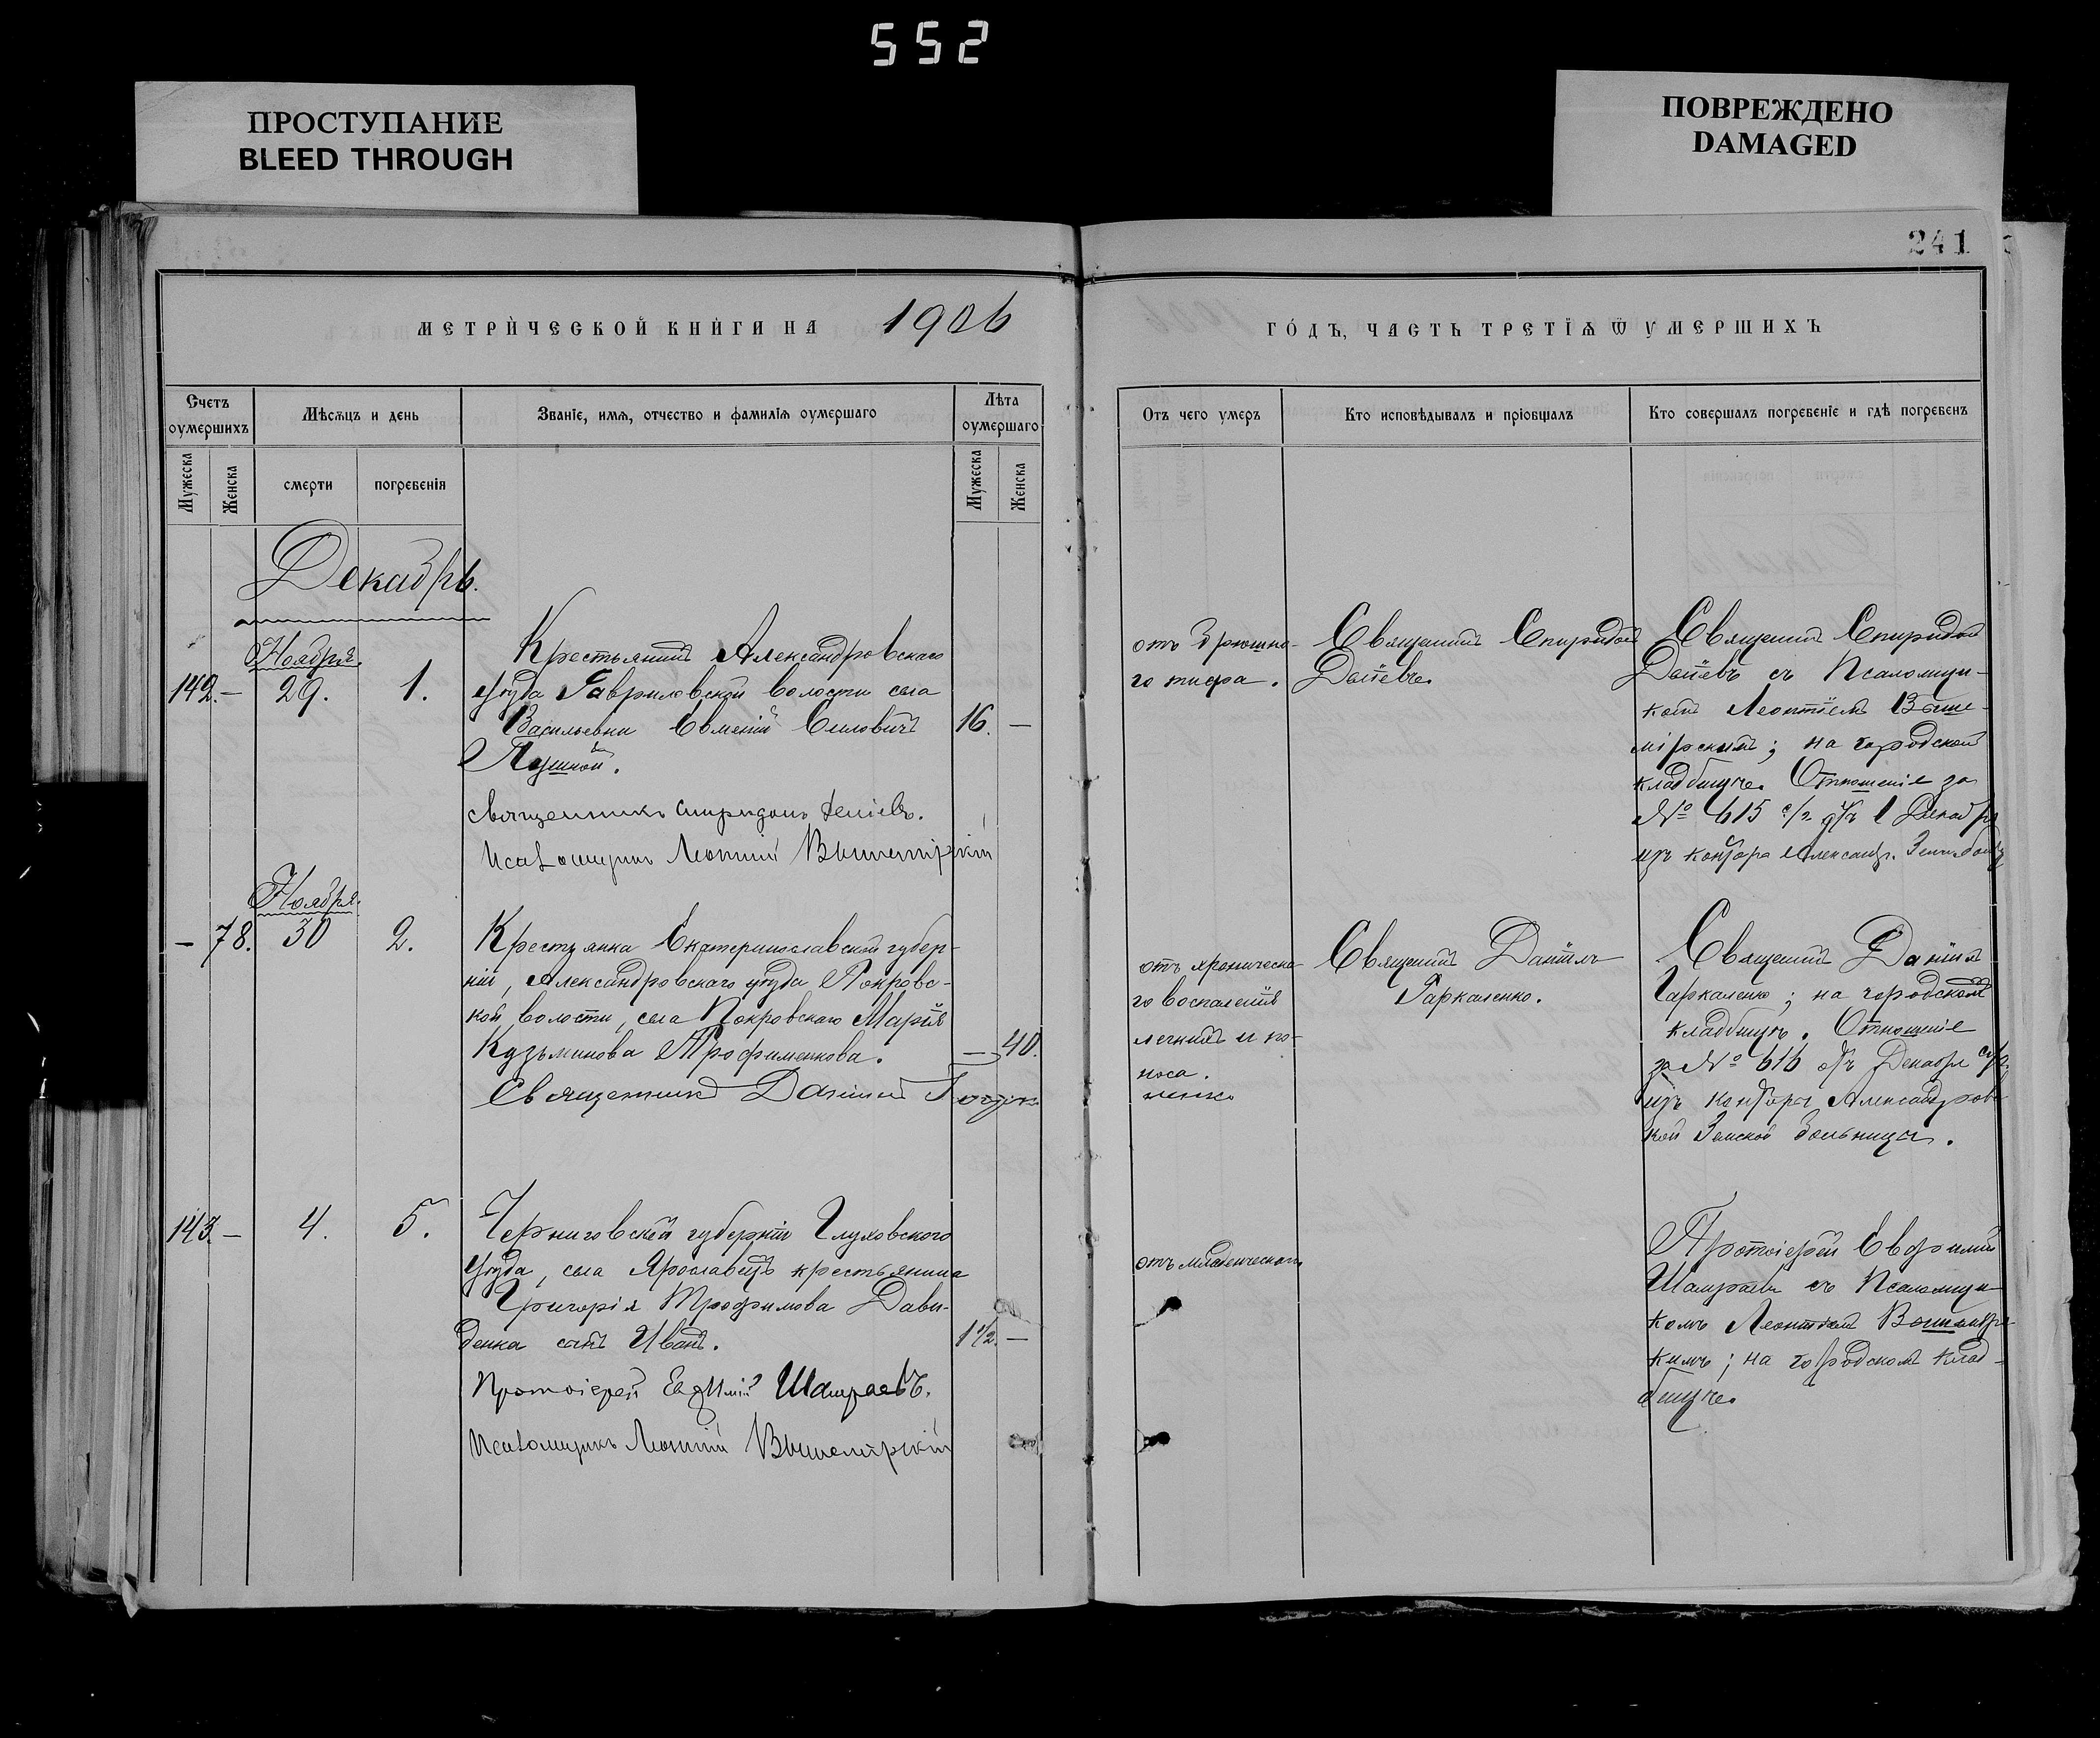 552
ПРОСТУПАНИЕ
BLEED THROUGH
ПОВРЕЖДЕНО
DAMAGED
241
МЕТРИ́ЧЕСКОЙ КНИ́ГИ НА 1906
ГО́ДЪ, ЧАСТЬ ТРЕТЇѦ Ѿ УМЕРШИХЪ
Счетъ оумершихъ
Мѣсѧцъ и день
Званїе, имѧ, отчество и фамилїѧ оумершаго
Лѣта оумершаго
Мужеска
Женска
смерти
погребенїѧ
Мужеска
Женска
Отъ чего умеръ
Кто исповѣдывалъ и прїобщалъ
Кто совершалъ погребенїе и гдѣ погребенъ
Декабрь.
Ноября.
142. — 29. 1.
Крестьянинъ Александровскаго
уѣзда Гавриловской волости села
Васильевки Евменій Силовичъ 16. —
Священникъ Спиридонъ
Псаломщикъ Леонтій Вышемірскій
отъ брюшно-
го тифа.
Священникъ Спиридонъ
Священникъ Спиридонъ
съ Псаломщи-
комъ Леонтіемъ Выше-
мірскимъ; на городскомъ
кладбищѣ. Отношеніе за
№ 615 1 Декабря
изъ конторы Александр.
Ноября.
— 78. 30 2.
Крестьянка Екатеринославской губер-
ніи, Александровскаго уѣзда Покровс-
кой волости, села Покровскаго Марія
Кузьминова Трофименкова. — 40.
Священникъ Даніилъ
отъ хроническа-
го воспаленія
легкихъ и по-
носа.
Священникъ Даніилъ
Гаркаленко.
Священникъ Даніилъ
Гаркаленко; на городскомъ
кладбищѣ. Отношеніе
за № 616 Декабря
изъ конторы Александровс
кой Земской больницы.
143. — 4. 5.
Черниговской губерніи Глуховского
уѣзда, села Ярославецъ крестьянина
Григорія Трофимова Дави-
денка сынъ Иванъ. 1 1/2. —
Протоіерей Евфимій Шамраевъ.
Псаломщикъ Леонтій Вышемірскій
отъ младенческой
Протоіерей Евфимій
Шамраевъ съ Псаломщи-
комъ Леонтіемъ Вышемірс-
кимъ; на городскомъ клад-
бищѣ.